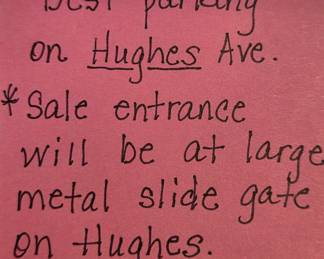 best parking
on Hughes Ave.
*Sale entrance
will be at large
metal slide gate
on Hughes.